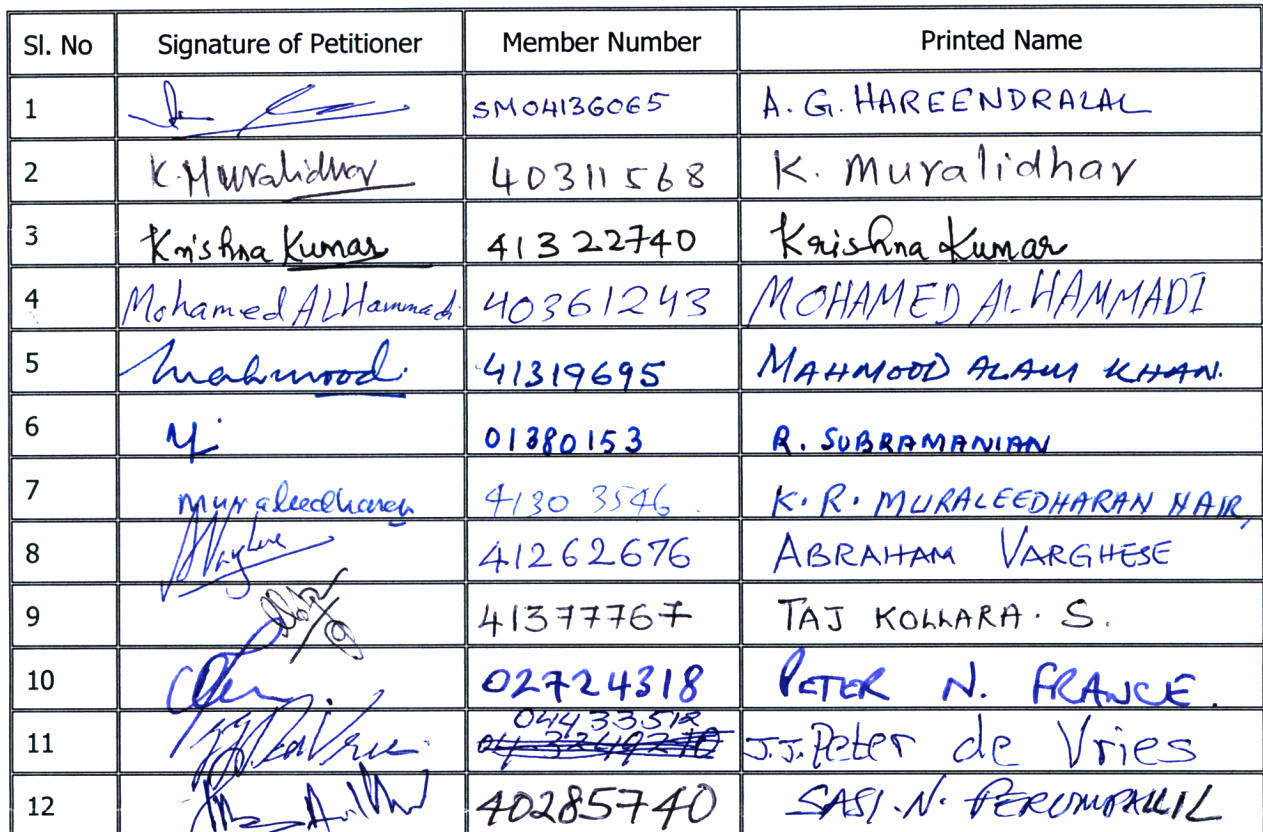 Sl. No Signature of Petitioner Member Number Printed Name
1 SM04136065 A. G. HAREENDRALAL
2 K. Muralidhar 40311568 K. Muralidhar
3 Krishna Kumar 41322740 Krishna Kumar
4 Mohamed ALHammadi 40361243 MOHAMED ALHAMMADI
5 Mahmood. 41319695 MAHMOOD ALAM KHAN.
6 01380153 R. SUBRAMANIAN
7 muraleedharan 4130 3546. K. R. MURALEEDHARAN NAIR,
8 41262676 ABRAHAM VARGHESE
9 41377767 TAJ KOLLARA. S.
10 02724318 PETER N. FRANCE.
04433512
11 J.J. Peter de Vries
12 40285740 SASI. N. PERUMPALLIL